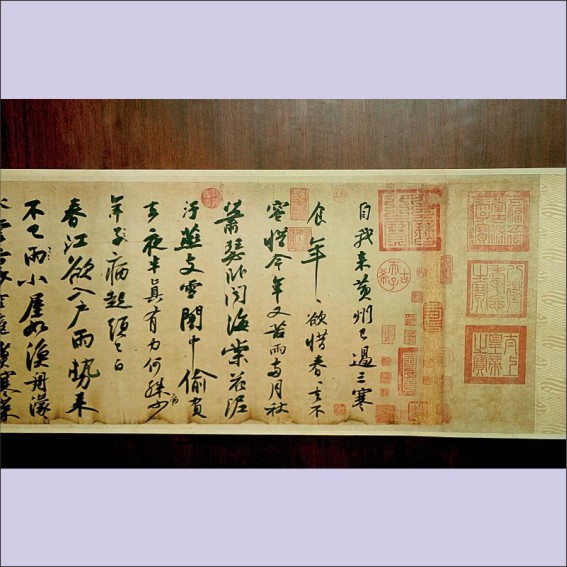 自我来黃州已過三寒
食年〻欲惜春〻去不
容惜今年又苦雨兩月秋
蕭瑟卧聞海棠花泥
汙燕支雪闇中偷負
去夜半真有力何殊少
年子病起頭已白
春江欲入戶雨勢来
不已雨小屋如漁舟濛〻